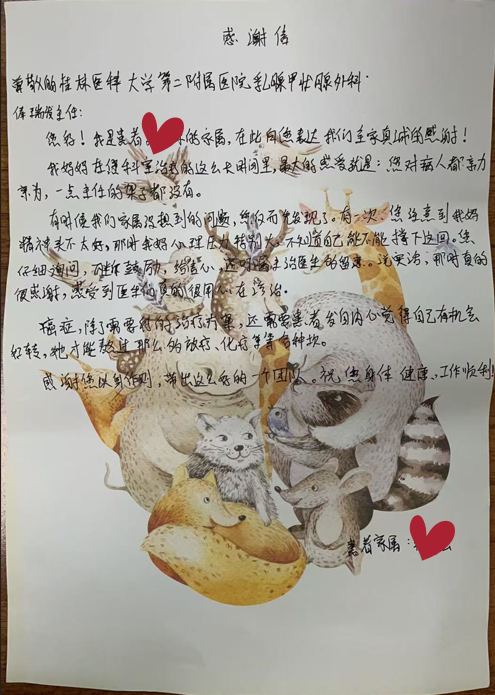 感谢信
尊敬的桂林医科大学第二附属医院乳腺甲状腺外科
主任:
您好!我是患者的家属,在此向您表达我们全家真诚的感谢!
我妈妈在您科室治疗的这么长时间里,最大的感受就是:您对病人都亲力
亲为,一点主任的架子都没有。
有时候我们家属没想到的问题,您反而发现了。有一次,您注意到我妈
精神头不太好,那时我妈心理压力特别大,不知道自己能不能撑下这回。您
仔细询问,耐心鼓励,给信心,还叮嘱主治医生留意。说实话,那时真的
很感谢,感受到医生们真的很用心在诊治。
癌症,除了需要好的治疗方案,还需要患者发自内心觉得自己有机会
好转,她才能熬过那么的放疗、化疗等等各种坎。
感谢您以身作则,带出这么好的一个团队。祝您身体健康,工作顺利!
患者家属: